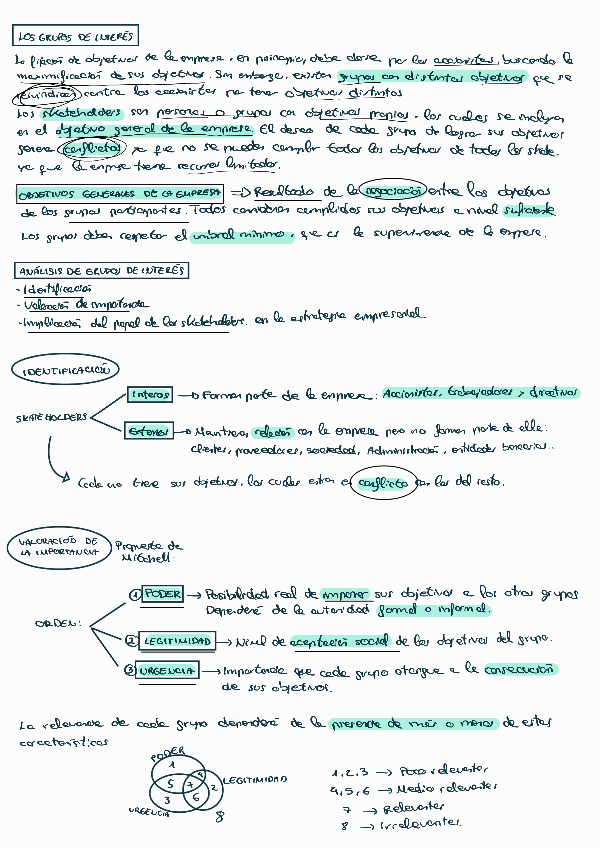 LOS GRUPOS DE INTERÉS
La fijación de objetivos de la empresa, en principio, debe darse por los accionistas, buscando la
maximificación de sus objetivos. Sin embargo, existen grupos con distintos objetivos que se
contra los accionistas por tener objetivos distintos
Los skateholders son personas o grupos con objetivos propios, los cuales se incluyen
en el objetivo general de la empresa El deseo de cada grupo de lograr sus objetivos
genera conflictos ya que no se pueden cumplir todos los objetivos de todos los skate.
ya que la empresa tiene recursos limitados.
OBJETIVOS GENERALES DE LA EMPRESA => Resultado de la negociación entre los objetivos
de los grupos participantes. Todos consideran cumplidos sus objetivos a nivel suficiente
Los grupos deben respetar el umbral mínimo, que es la supervivencia de la empresa.
ANÁLISIS DE GRUPOS DE INTERÉS
- Identificación
- Valoración de importancia
- Implicación del papel de los skateholders. en la estrategia empresarial
IDENTIFICACIÓN
Internos → Forman parte de la empresa: Accionistas, trabajadores y directivos
SKATEHOLDERS
Externos → Mantienen relación con la empresa pero no forman parte de ella:
clientes, proveedores, sociedad, Administración, entidades bancarias..
Cada uno tiene sus objetivos, los cuales entran en conflicto con los del resto.
VALORACIÓN DE LA IMPORTANCIA
Propuesta de
Mitchell:
① PODER → Posibilidad real de imponer sus objetivos a los otros grupos
Dependerá de la autoridad formal o informal.
ORDEN:
② LEGITIMIDAD → Nivel de aceptación social de los objetivos del grupo.
③ URGENCIA → Importancia que cada grupo otorgue a la consecución
de sus objetivos.
La relevancia de cada grupo dependerá de la presencia de más o menos de estas
características
PODER
1
4
5
7
2
LEGITIMIDAD
3
6
URGENCIA
8
1,2,3 → Poco relevantes
4,5,6 → Medio relevantes
7 → Relevantes
8 → Irrelevantes.